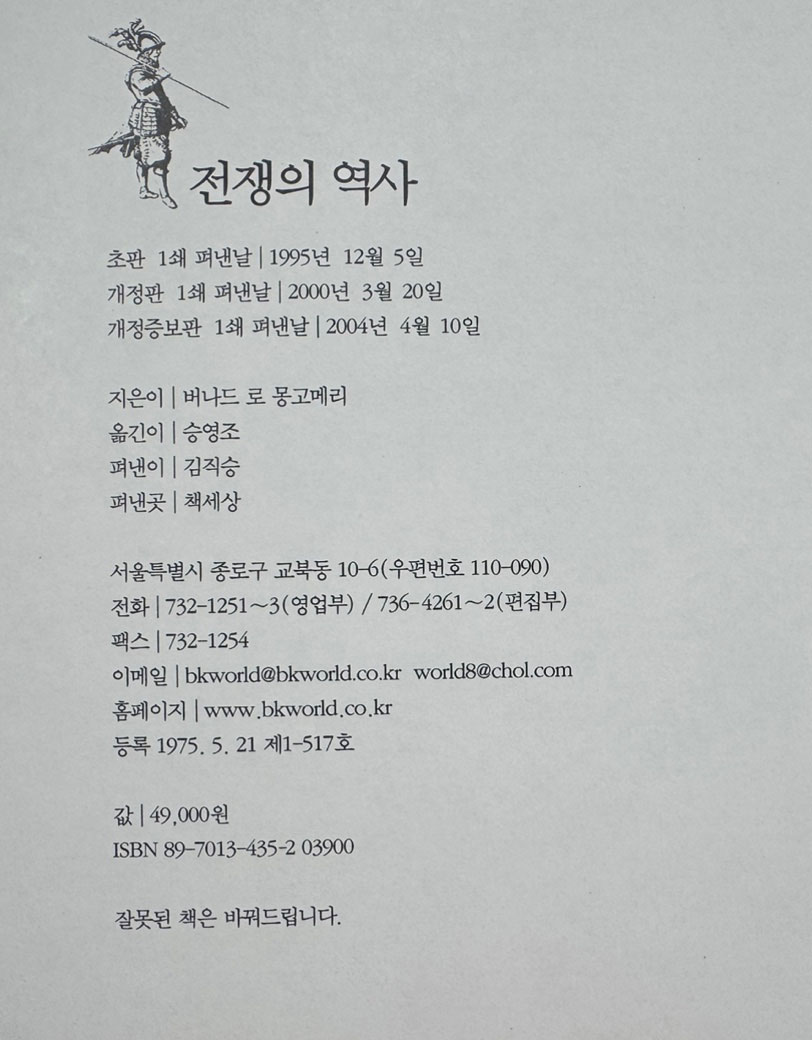 전쟁의 역사
초판 1쇄 펴낸날 | 1995년 12월 5일
개정판 1쇄 펴낸날 | 2000년 3월 20일
개정증보판 1쇄 펴낸날 | 2004년 4월 10일
지은이 | 버나드 로 몽고메리
옮긴이 | 승영조
펴낸이 | 김직승
펴낸곳 | 책세상
서울특별시 종로구 교북동 10-6(우편번호 110-090)
전화 | 732-1251~3(영업부) / 736-4261~2(편집부)
팩스 | 732-1254
이메일 | bkworld@bkworld.co.kr world8@chol.com
홈페이지 | www.bkworld.co.kr
등록 1975. 5. 21 제1-517호
값 | 49,000원
ISBN 89-7013-435-2 03900
잘못된 책은 바꿔드립니다.